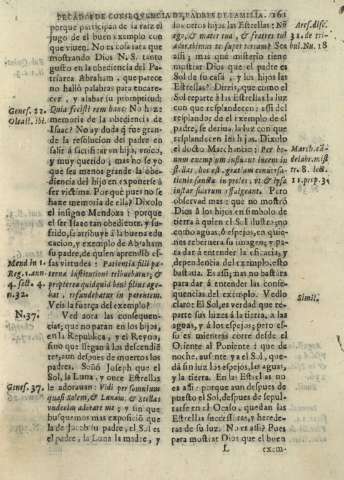 PECADOS DE CONSEQVENCIA DE PADRES DE FAMILIA. 161
porque participan de la raiz el
jugo de el buen exemplo con
que viuen. No es cosa rara que
mostrando Dios N. S. tanto
gusto en la obediencia del Pa-
triarca Abraham, que parece
no halló palabras para encare-
cer, y alabar su promptitud:
Genes. 22. Quia fecisti rem hanc. No haze
Oleast. ibi. memoria de la obediencia de
Isaac? No ay doda q̃ fue gran-
de la resolucion del padre en
salir à sacrificar vn hijo, vnico,
y muy querido; mas no sé yo
que sea menos grande la obe-
diencia del hijo en exponerse à
ser victima. Por què pues no se
haze memoria de ella? Dixolo
el insigne Mendoza: porque
el ser Isaac tan obediente, y su-
frido, se atribuye à la buena edu-
cacion, y exemplo de Abraham
su padre, de quien aprendiò es-
Mend in 1. tas virtudes: Patientia filij pa-
Reg. 1. ann- terna institutioni tribuebatur; &
4. sect. 4. propterea quidquid boni filius age-
n. 32. bat, refundebatur in parentem.
Veis la fuerça del exemplo?
N. 37. Ved aora las consequen-
cias; que no paran en los hijos,
en la Republica, y el Reyno,
sino que llegan à los descendi-
tes, aun despues de muertos los
padres. Soñò Joseph que el
Sol, la Luna, y onze Estrellas
Genes. 37. le adorauan: Vidi per somnium
quasi Solem, & Lunam, & stellas
vndecim adorare me; y sin que
busquemos mas exposiciò que
la de Jacob su padre, el Sol es
el padre, la Luna la madre, y
los otros hijos las Estrellas: Nũ
ego, & mater tua, & fratres tui Ares. disc.
adorabimus te super terram? Sea 32. de tri-
assi; mas que misterio tiene bul. Nu. 18
mostrar Dios que el padre es
Sol de su casa, y los hijos las
Estrellas? Direis, que como el
Sol reparte à las Estrellas la luz
con que resplandecen: assi del
resplandor de el exemplo de el
padre, se deriua la luz con que
resplandecen los hijos. Dixolo
el docto Marchancio: Per bo- March.
num exemplum influunt lucem in
istas, hoc est, gratiam conuersa-
tionis sanctæ in proles; vt & ipsæ tr. 8. lect.
instar siderum effulgeant. Pero 11. prop. 34
observad mas: que no mostrò
Dios à los hijos en simbolo de
tierra à quien el Sol ilustre; no
como aguas, ò espejos, en quie-
nes reberuera su imagen; y pa-
ra dàr à entender la eficacia, y
dependencia del exemplo, esto
bastaba. Es assi; mas no bastàra
para dàr à entender las conse-
quencias del exemplo. Vedlo
claro: El Sol, es verdad que re- Simil.
parte sus luzes à la tierra, à las
aguas, y à los espejos; pero es-
so es mientras corre desde el
Oriente al Poniente: que de
noche, ausente ya el Sol, que-
dà sin luz los espejos, las aguas,
y la tierra. En las Estrellas no
es assi: porque aun despues de
puesto el Sol, aun despues de se-
pultarse en el Ocaso, quedan las
Estrellas sucessoras, y herede-
ras de su luz. No es assi? Pues
para mostrar Dios que el buen
L exem-